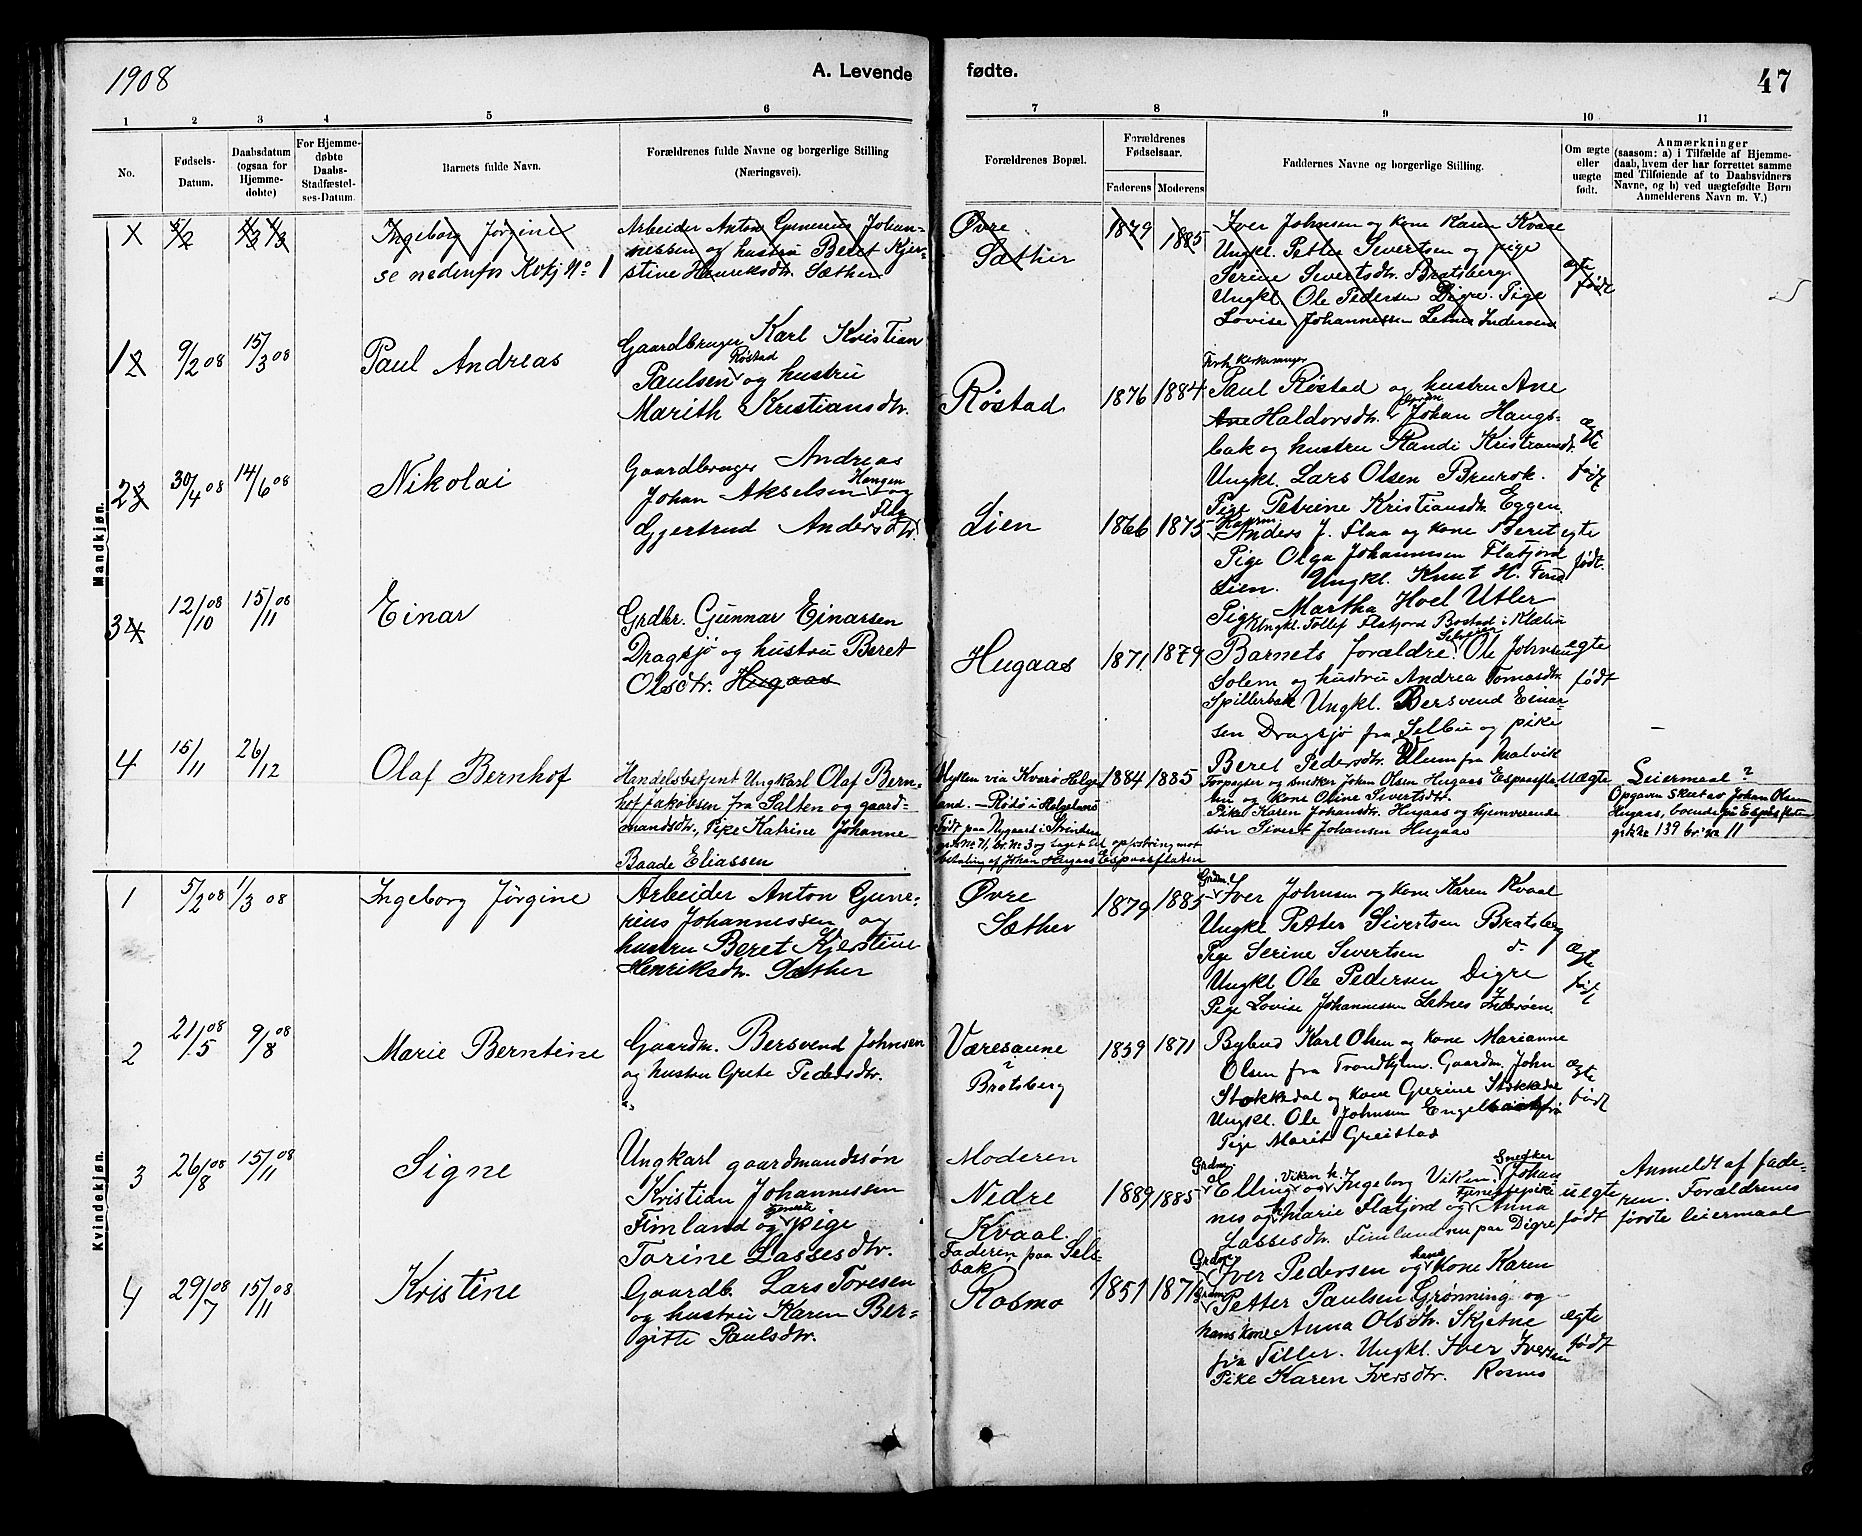 1908
A. Levende fødte.
47
1 2 3 4 5 6 7 8 9 10 11
No.
Fødsels-
Datum.
Daabsdatum
(ogsaa for
Hjemme-
døbte)
For Hjemme-
døbte
Daabs-
Stadfæstel-
ses-Datum.
Barnets fulde Navn.
Forældrenes fulde Navne og borgerlige Stilling
(Næringsvei).
Forældrenes Bopæl.
Forældrenes
Fødselsaar.
Faderens Moderens
Faddernes Navne og borgerlige Stilling.
Om ægte
eller
uægte
født.
Anmærkninger
(saasom: a) i Tilfælde af Hjemme-
daab, hvem der har forrettet samme
med Tilføiende af to Daabsvidners
Navne, og b) ved uægtefødte Børn
Anmelderens Navn m. V.)
Mandkjøn.
5/2
1/3
Ingeborg Jørgine
se nedenfor Kvkj No 1
Arbeider Anton Gunerius Johan-
nessen og hustru Beret Kjer-
stine Henriksdtr. Sæther
Øvre
Sæther
1879 1885
Iver Johnsen og kone Karen Kvaae
Ungkl. Petter Sivertsen og pige
Serine Sivertsdtr. Bratsberg
Ungkl. Ole Pedersen Digre. Pige
Lovise Johannessen Letnes Inderøen
ægte
født
1
9/2 08
15/3 08
Paul Andreas
Gaardbruger Karl Kristian
Røstad
Paulsen og hustru
Marith Kristiansdtr.
Røstad
1876 1884
Forh. Kirkesanger
Paul Røstad og hustru Ane
Ane Haldorsdtr. Johan Haugs-
bak og hustru Randi Kristiansdt.
Ungkl. Lars Olsen Brurok.
Pige Petrine Kristiansdtr. Eggen.
ægte
født
2
30/4 08
14/6 08
Nikolai
Gaardbruger Andreas
Haugen
Johan Akselsen og
Flaa
Gjertrud Andersdtr.
Lien
1866 1875
Anders J. Flaa og kone Beret
Pige Olga Johannesen Flatjord
Lien. Ungkl. Knut H.
Pige Martha Hoel Utler
Ungkl. Tollef Flatjord Bostad i Klæbu
egte
født.
3
12/10 08
15/11 08
Einar
Grdbr. Gunnar Einarsen
Dragsjø og hustru Beret
Olsdtr. Hugaas
Hugaas
1871 1879
Barnets forældre. Ole Johnsen
Solem og hustru Andrea Tomasdtr.
Spillerbak Ungkl. Bersvend Einar-
sen Dragsjø fra Selbu og pike
Beret Pedersdtr. Ulum fra Malvik
egte
født
4
15/11
26/12
Olaf Bernhof
Handelsbetjent Ungkarl Olaf Bern-
hof Jakobsen fra Salten og gaard-
mandsdtr., Pike Katrine Johanne
Baade Eliassen
Myken via Kvarø Helge-
land. — Rødø i Helgeland
Født paa Nygaard i Strinden
grds No 71, br. No 3 og taget til opfostring mot
betaling af Johan Hugaas Espaasflaten
1884 1885
Forpagter og snekker Johan Olsen Hugaas Espaasfla-
ten og kone Oline Sivertsdtr.
Pike Karen Johansdtr. Hugaas og hjemværende
søn Sivert Johansen Hugaas
Uægte
Leiermaal ?
Opgaven skeet av Johan Olsen
Hugaas, boende på Espåsflaten
Kvindekjøn.
1
5/2 08
1/3 08
Ingeborg Jørgine
Arbeider Anton Gune-
rius Johannessen og
hustru Beret Kjerstine
Henriksdtr. Sæther
Øvre
Sæther
1879 1885
Grdm.
Iver Johnsen og kone Karen Kvaal
Ungkl Petter Sivertsen Bratsberg
Pige Serine Sivertsen do
Ungkl Ole Pedersen Digre
Pige Lovise Johannessen Letnes Inderøen.
ægte
født
2
21/5 08
9/8 08
Marie Berntine
Gaardm. Bersvend Johnsen
og hustru Grete Pedersdtr.
Væresaune
i
Bratsberg
1859 1871
Bybud Karl Olsen og kone Marianne
Olsen fra Trondhjem. Gaardm. John
Stokkedal og kone Gjerine Stokkedal
Ungkl. Ole Johnsen
Pige Marit Greistad
ægte
født
3
26/8 08
15/11 08
Signe
Ungkarl gaardmandssøn
Kristian Johannessen
tjeneste
Fimland og pige
Torine Lassesdtr.
Moderen
Nedre
Kvaal.
Faderen paa Sels-
bak
1889 1885
Grdmd.
Viken k.
Snedker
Elling og Ingeborg Viken. Johan
Tjenestepike
nes og Marie Flatjord og Anna
Lassesdtr. Fimland nu paa Digre
uegte
født
Anmeldt af fade-
ren. Forældrenes
første leiermaal
4
29/7 08
15/11 08
Kristine
Gaardb. Lars Toresen
og hustru Karen Ber-
gitte Paulsdtr.
Rosmo
1851 1871
Grdm.
hans
Iver Pedersen og kone Karen
Grdm.
Petter Paulsen Grønning og
hans kone Anna Olsdtr. Skjetne
fra Tiller. Ungkl. Iver Iversen
Pike Karen Iversdtr. Rosmo
ægte
født